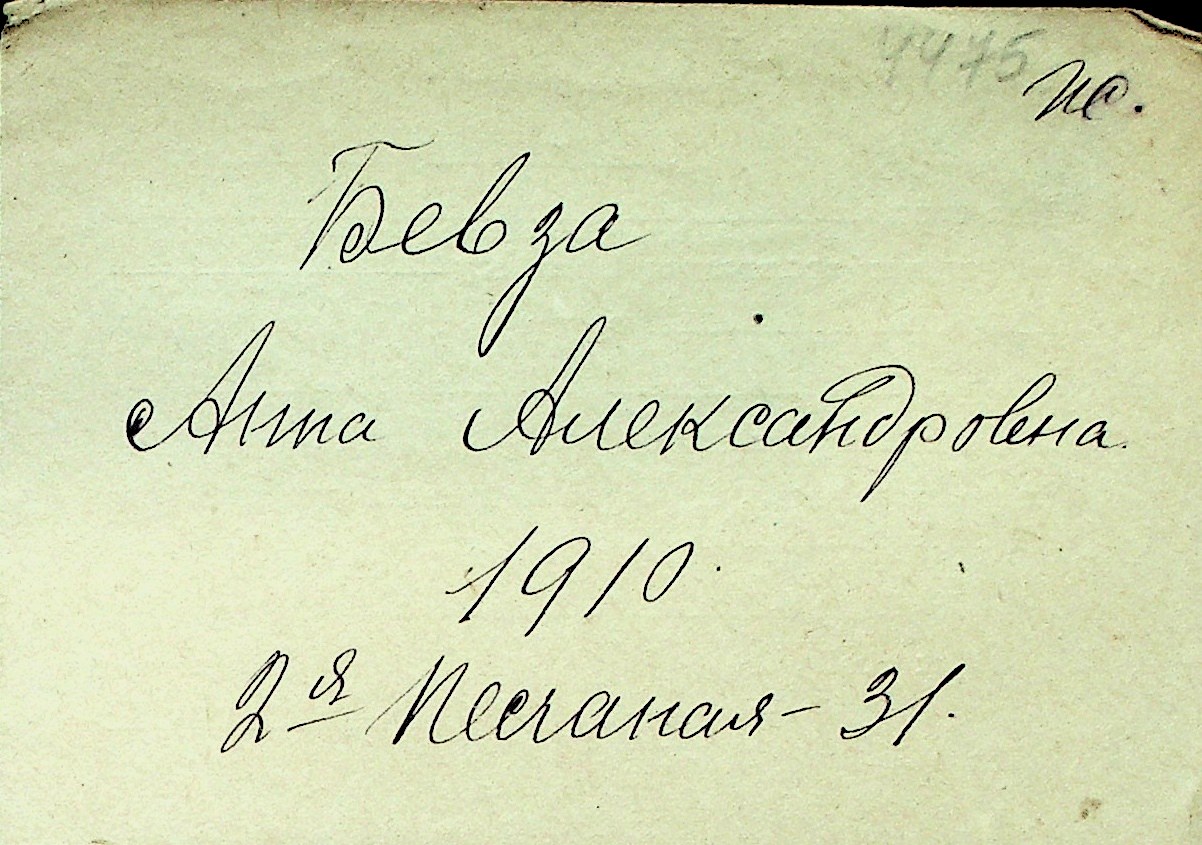 7475
пс.
Бевза
Анна Александровна
1910.
2ая Песчаная - 31.